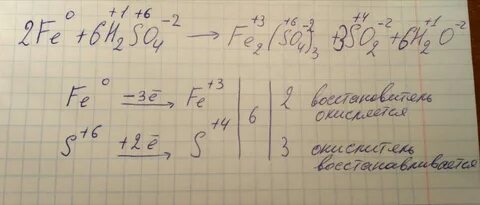 2Fe⁰ + 6H₂⁺¹S⁺⁶O₄⁻² → Fe₂⁺³(S⁺⁶O₄⁻²)₃ + 3S⁺⁴O₂⁻² + 6H₂⁺¹O⁻²
Fe⁰ –3ē → Fe⁺³ | 6 | 2 восстановитель
окисляется
S⁺⁶ +2ē → S⁺⁴ | | 3 окислитель
восстанавливается